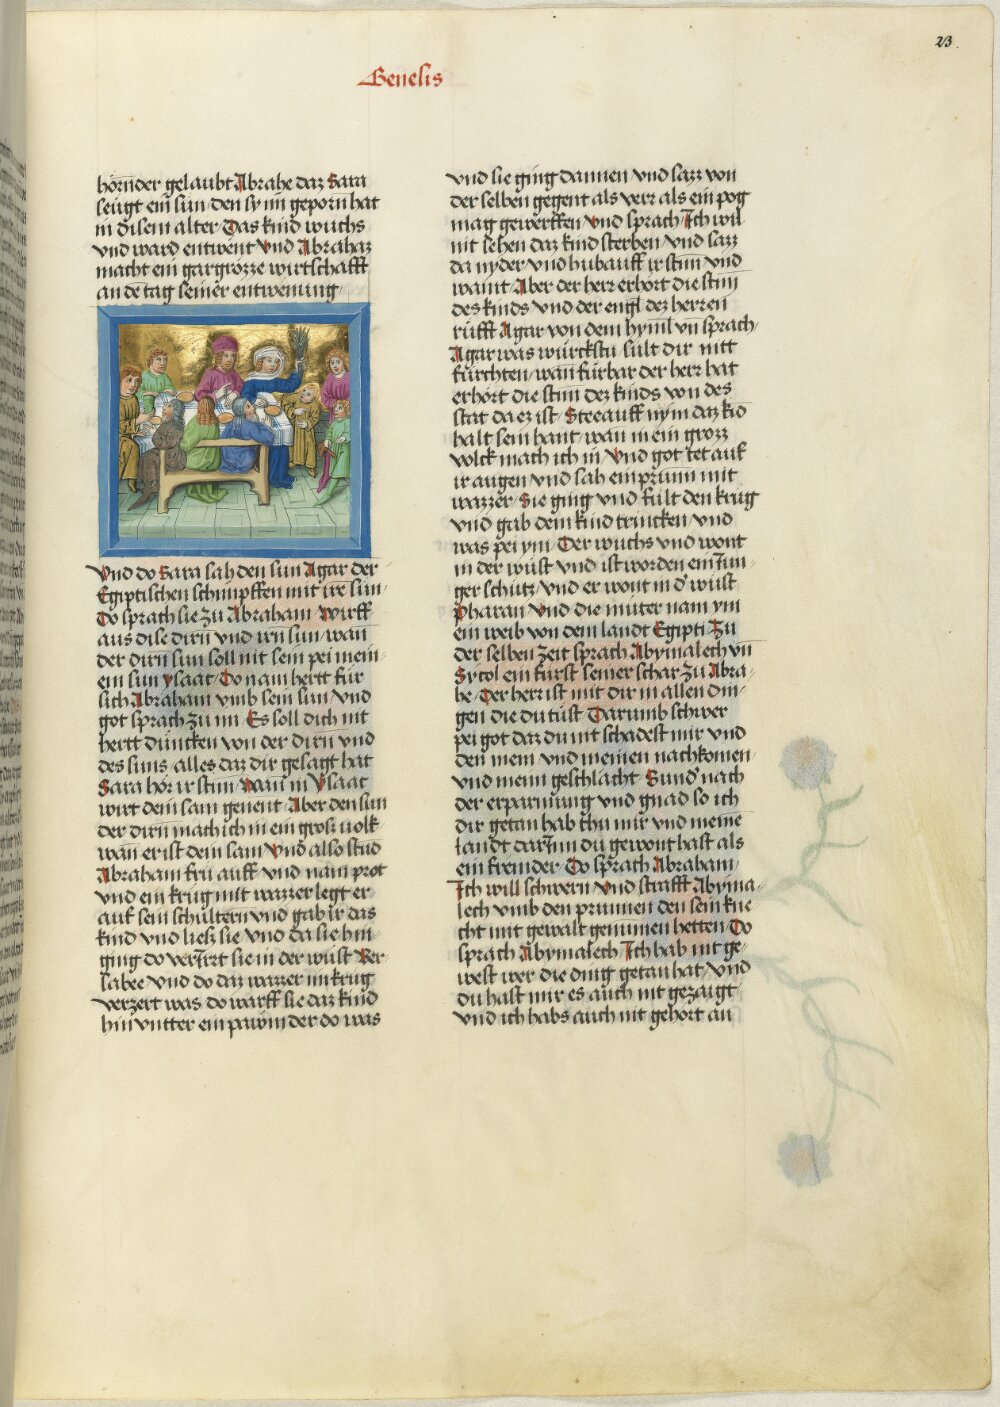 23
Genesis
hörnder gelaubt Abrahe daz Sara
seugt ein sun den sy im geporn hat
in disem alter Das kind wuchs
vnd ward entwent Vnd Abrahaz
macht ein gar grozze wirtschafft
an de tag seiner entwenung
Vnd do Sara sah den sun Agar der
Egiptischen schimpffen mit ire sun
Do sprach sie zu Abraham Wirff
aus dise dirn vnd irn sun wan
der dirn sun soll nit sein pei mein
em sun ysaac Do nam hertt für
sich Abraham vmb sein sun vnd
got sprach zu im Es soll dich nit
hertt duncken von der dirn vnd
des suns alles daz dir gesagt hat
Sara hör ir stim Wan in Ysaac
wirt dein sam genent Aber den sun
der dirn mach ich in ein groß uolk
wan er ist dein sam Vnd also stud
Abraham frü auff vnd nam prot
vnd ein krüg mit wazzer legt er
auf sein schültern vnd gab ir das
kind vnd ließ sie Vnd da sie hin
ging do verirrt sie in der wüst Ber
sabee vnd do daz wazzer im krug
verzert was do warff sie daz kind
hin vntter ein pawm der do was
vnd sie ging dannen vnd sazz von
der selben gegent als verz als ein pog
mag gewerffen Vnd sprach Ich wil
nit sehen daz kind sterben Vnd sazz
da nyder vnd hub auff ir stim vnd
waint Aber der herr erhört die stim
des kinds vnd der engl dez herren
rüfft Agar von dem hyml vn sprach
Agar was würckstu sült dir nitt
fürchten wan fürbar der herr hat
erhört die stim dez kinds von des
stat da ez ist Stee auff nym daz kid
halt sein hant wan in ein grozz
volck mach ich in Vnd got tet auf
ir augen vnd sah ein prünn mit
wazzer Sie ging vnd fült den krüg
vnd gab dem kind trincken vnd
was pei ym Der wuchs vnd wont
in der wüst vnd ist worden ein iun
ger schütz vnd er wont in d' wüst
Pharan Vnd die müter nam ym
ein weib von dem landt Egipti Zu
der selben zeit sprach Abymalech vn
Sycol ein fürst seiner schar zu Abra
he Der herr ist mit dir in allen din
gen die du tüst Darumb schwer
pei got daz du nit schadest mir vnd
den mein vnd meinen nachkomen
vnd meim geschlächt Sund' nach
der erparmung vnd gnad so ich
dir getan hab thu mir vnd meine
landt darinn du gewont hast als
ein fremder Do sprach Abraham
Ich will schwern Vnd strafft Abyma
lech vmb den prunnen den sein kne
cht mit gewalt genummen hetten Do
sprach Abymalech Ich hab nit ge
west wer die ding getan hat vnd
du hast mir es auch nit gezaigt
vnd ich habs auch nit gehort an